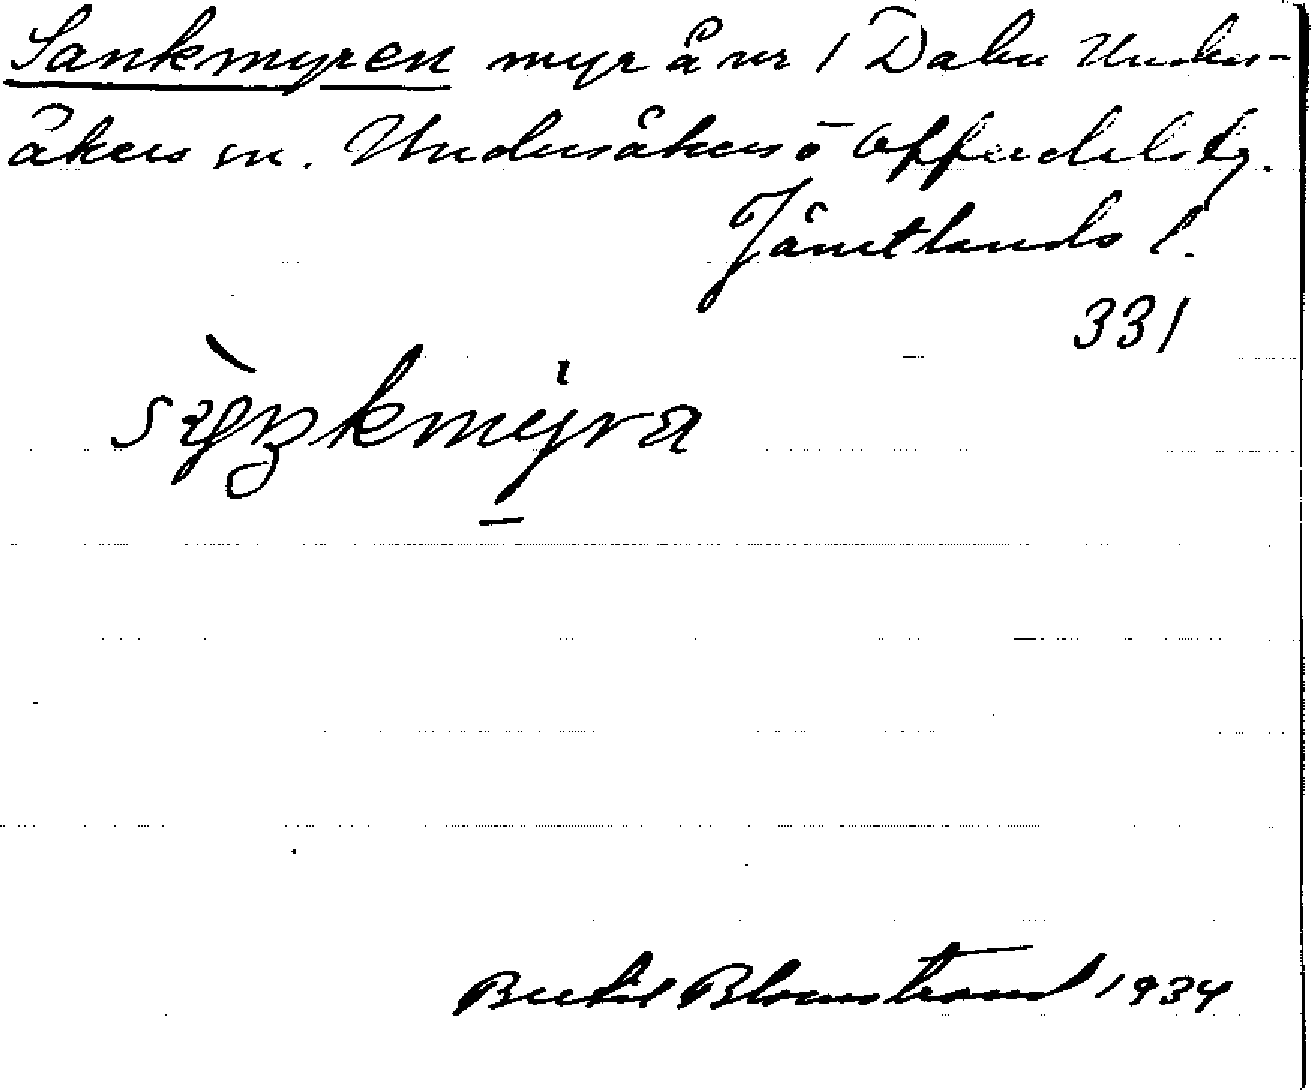 Sankmyren myr å nr 1 Dalen Unders-
åkers sn. Undersåkers o Offerdals tg.
Jämtlands l.
331
Bertil Blomstrand 1934